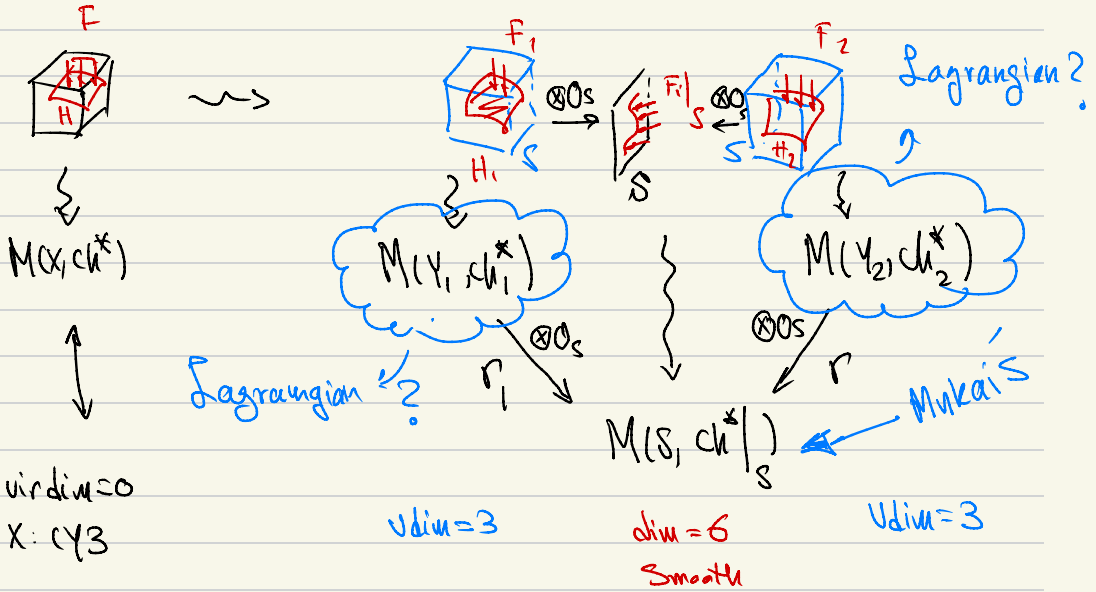 F
H
F₁
⊗Os
S
H₁
Fᵢ|s
S
⊗Os
F₂
S
H₂
Lagrangian?
M(X, ch*)
M(Y₁, ch₁*)
M(Y₂, ch₂*)
⊗Os
r₁
⊗Os
r
Lagrangian ?
Mukai's
M(S, ch*|s)
virdim=0
X: CY3
Vdim=3
dim=6
Smooth
Vdim=3